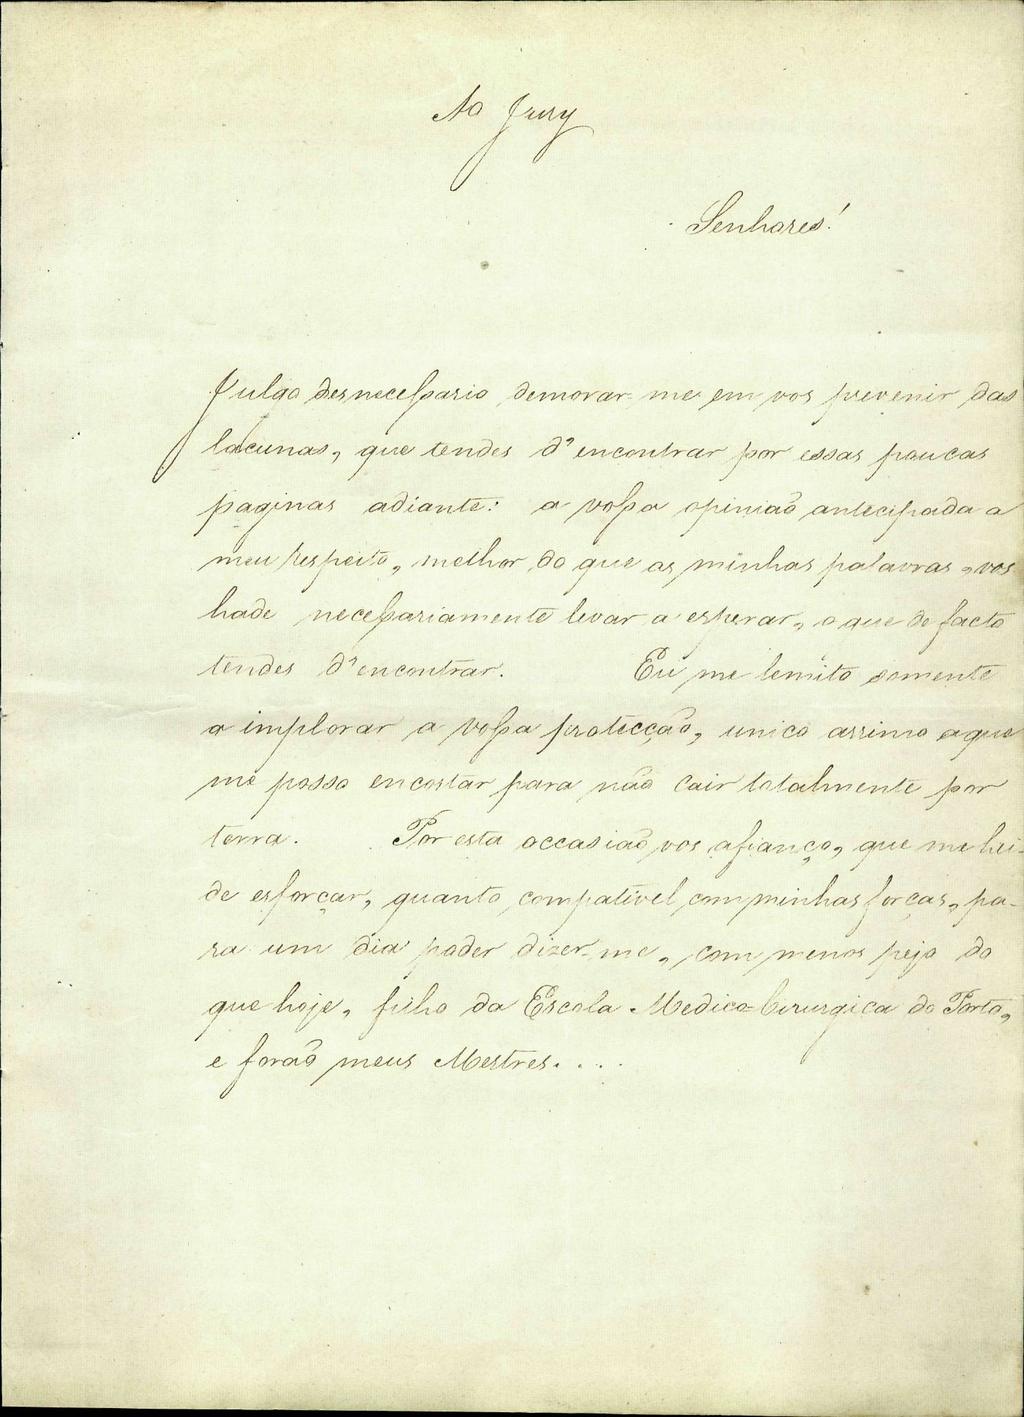 Ao Jury
Senhores!
Julgo desnecessario demorar-me em vos prevenir das
lacunas, que tendes d'encontrar por essas poucas
paginas adiante: a vossa opinião antecipada a
meu respeito, melhor do que as minhas palavras, vos
hade necessariamente levar a esperar, o que de facto
tendes d'encontrar. Eu me lemito somente
a implorar a vossa protecção, unico arrimo a que
me posso encostar para não cair totalmente por
terra. Por esta occasião vos afianço, que me hei-
de esforçar, quanto compativel com minhas forças, pa-
ra um dia poder dizer-me, com menos pejo do
que hoje, filho da Escola Medico-Cirurgica do Porto,
e forão meus Mestres....